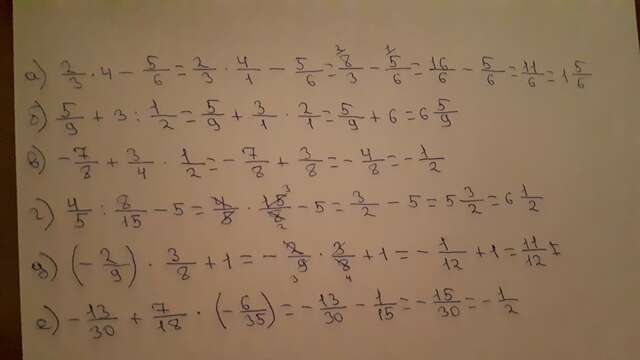 а) 2/3 · 4 − 5/6 = 2/3 · 4/1 − 5/6 = 2 8/3 − 1 5/6 = 16/6 − 5/6 = 11/6 = 1 5/6
б) 5/9 + 3 : 1/2 = 5/9 + 3/1 · 2/1 = 5/9 + 6 = 6 5/9
в) −7/8 + 3/4 · 1/2 = −7/8 + 3/8 = −4/8 = −1/2
г) 4/5 : 8/15 − 5 = 4/5 · 15/8 3 2 − 5 = 3/2 − 5 = 5 3/2 = 6 1/2
д) (−2/9) · 3/8 + 1 = −2/9 · 3/8 3 4 + 1 = −1/12 + 1 = 11/12
е) −13/30 + 7/18 · (−6/35) = −13/30 − 1/15 = −15/30 = −1/2